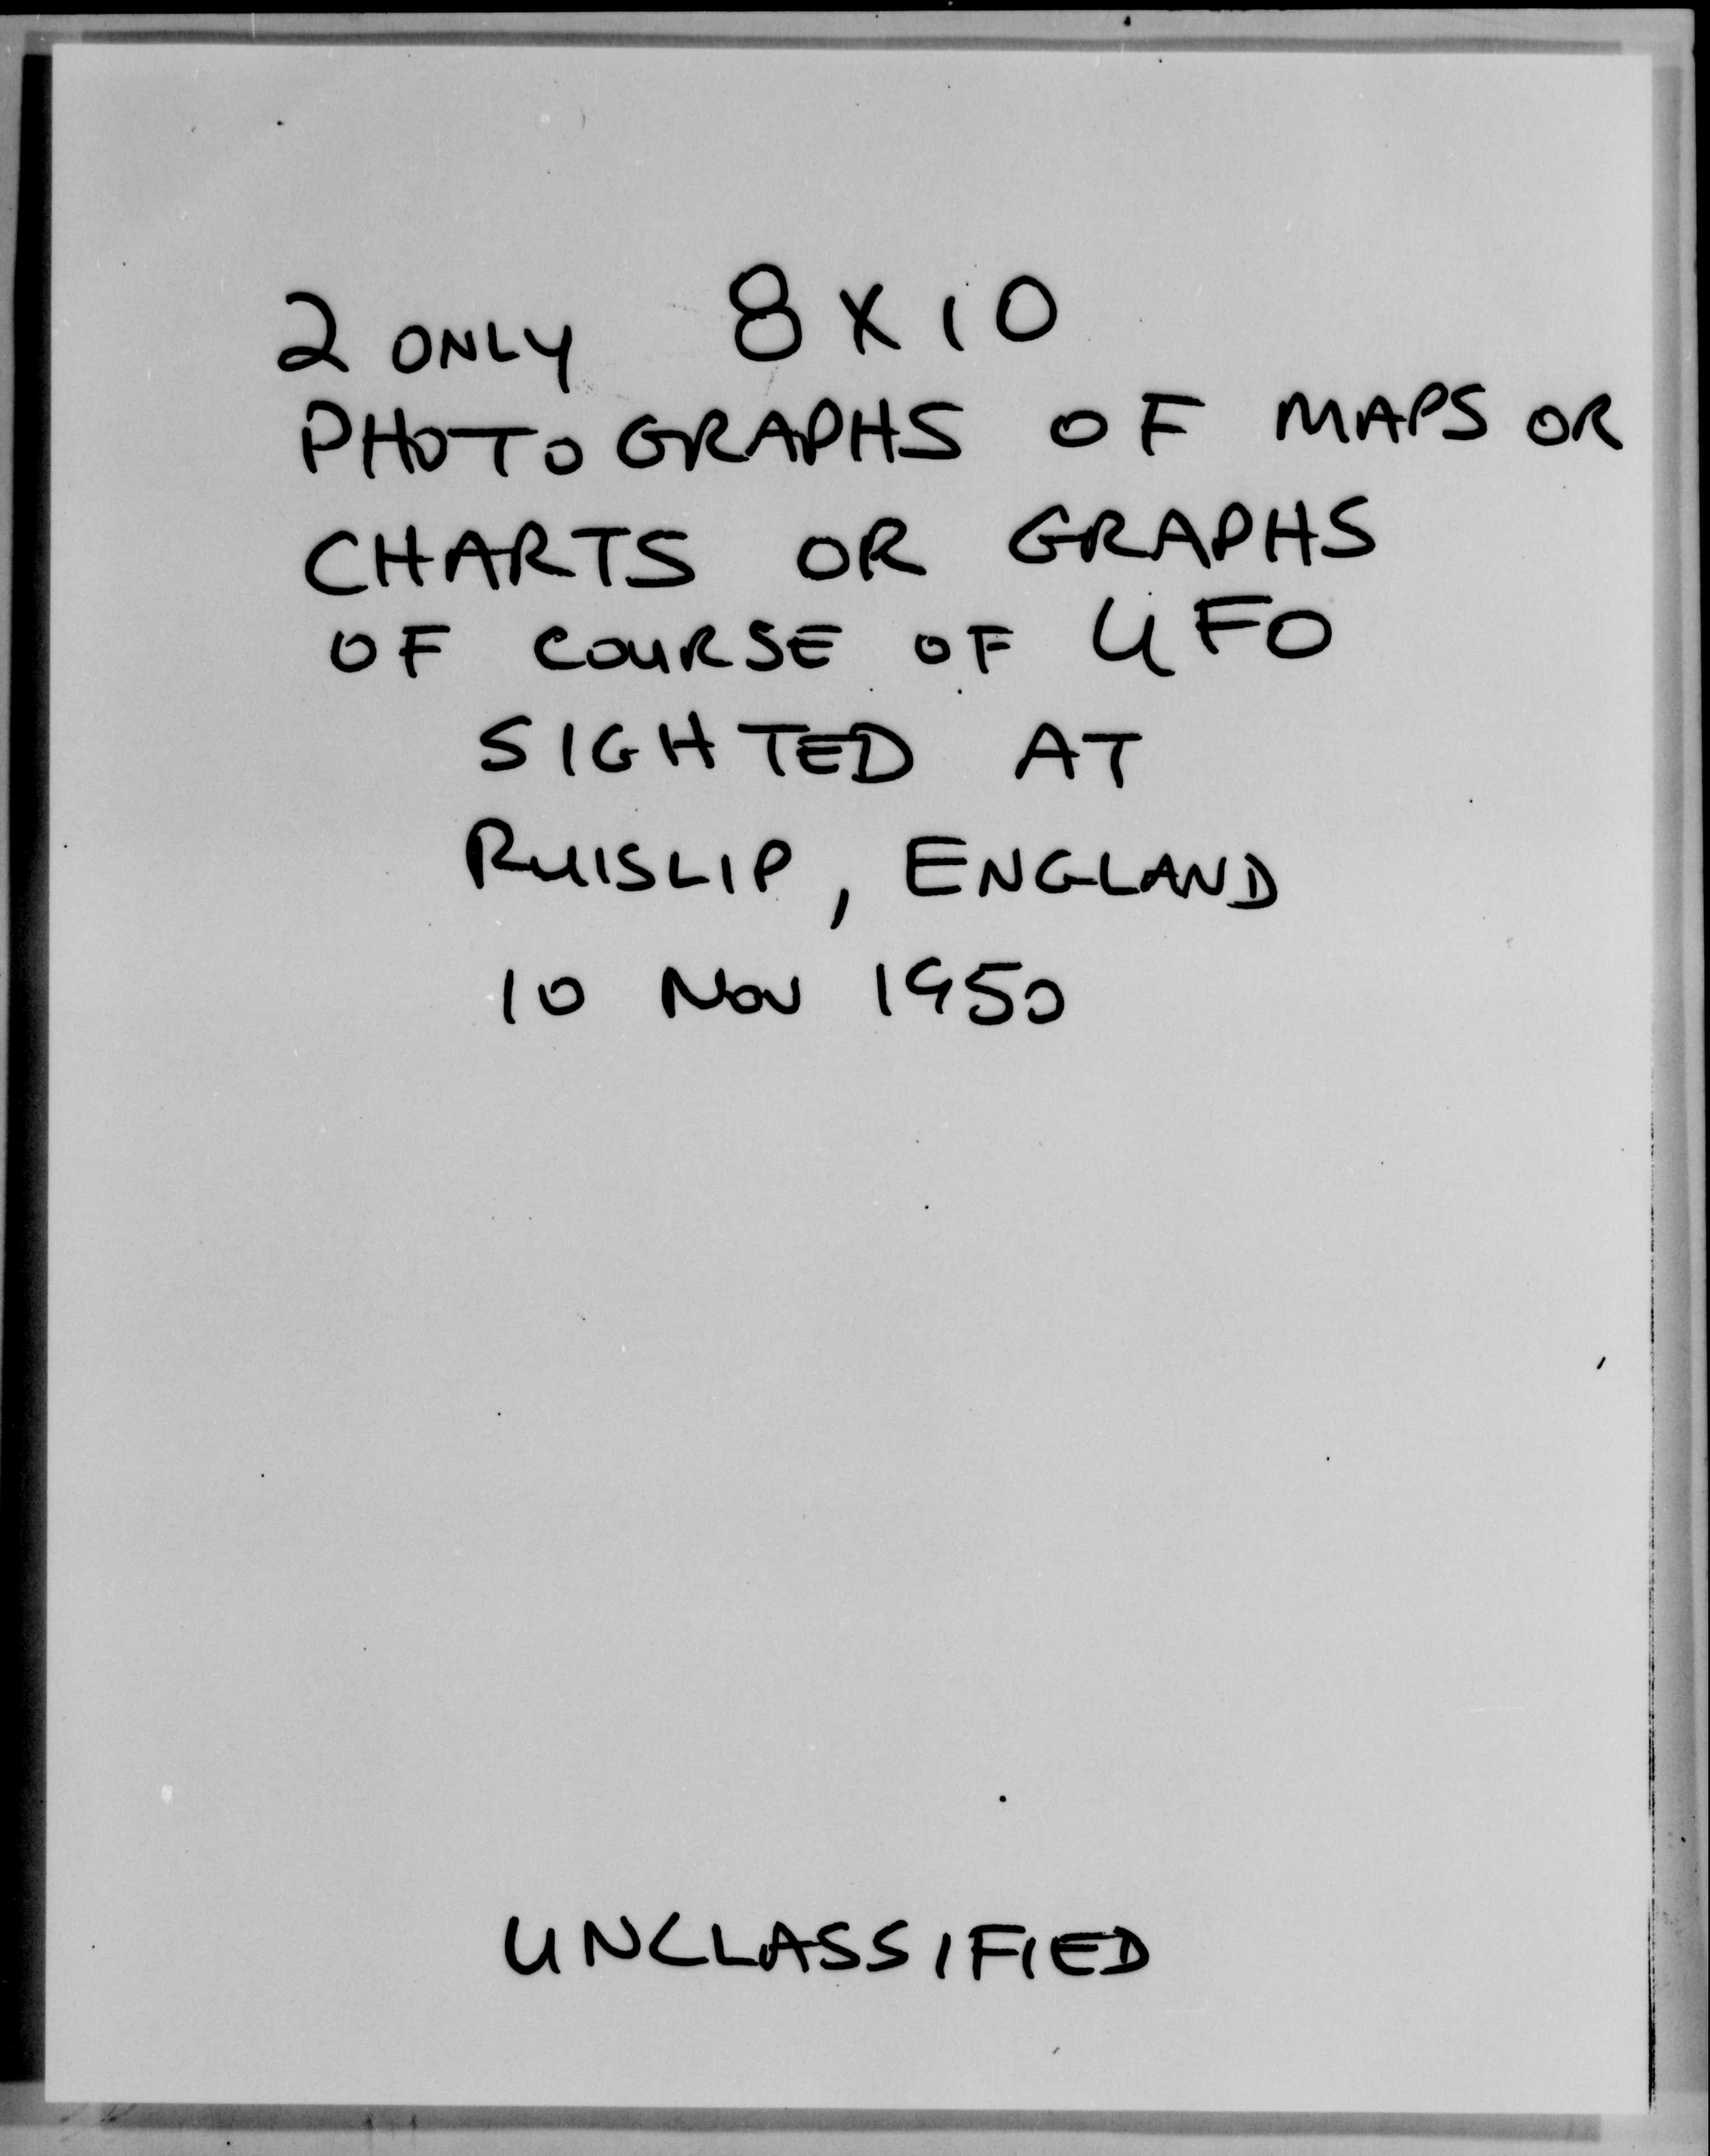 2 ONLY 8 X 10
PHOTOGRAPHS OF MAPS OR
CHARTS OR GRAPHS
OF COURSE OF UFO
SIGHTED AT
RUISLIP, ENGLAND
10 NOV 1950
UNCLASSIFIED